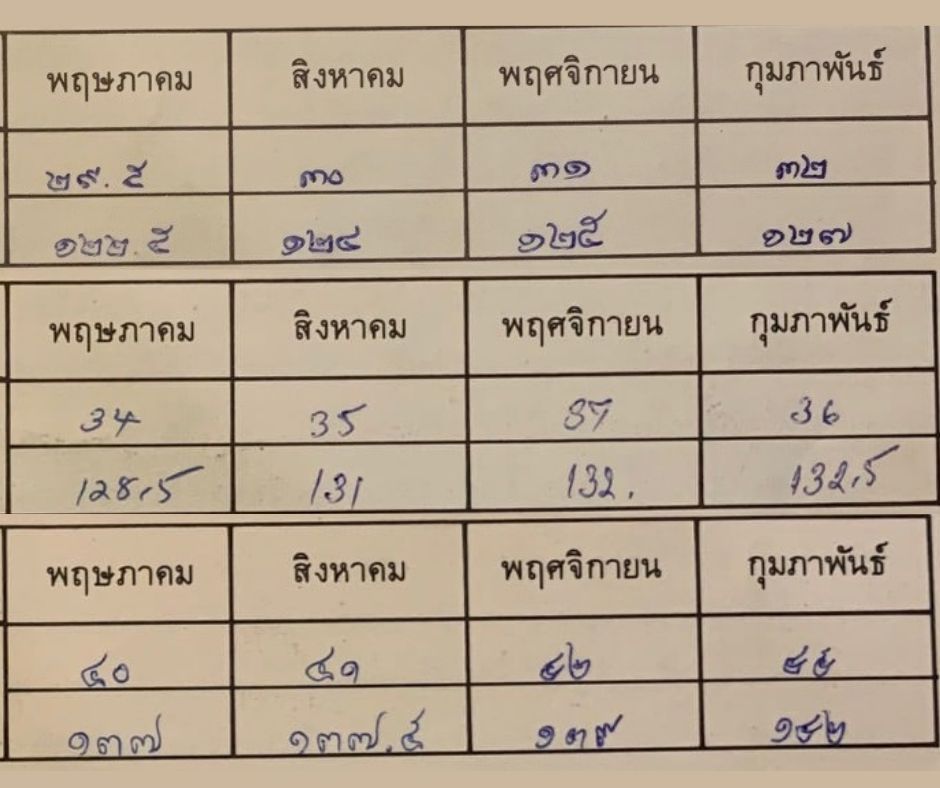 พฤษภาคม สิงหาคม พฤศจิกายน กุมภาพันธ์
๒๙.๕ ๓๐ ๓๑ ๓๒
๑๒๒.๕ ๑๒๔ ๑๒๕ ๑๒๗
พฤษภาคม สิงหาคม พฤศจิกายน กุมภาพันธ์
34 35 37 36
128.5 131 132. 132.5
พฤษภาคม สิงหาคม พฤศจิกายน กุมภาพันธ์
๔๐ ๔๑ ๔๒
๑๓๗ ๑๓๗.๕ ๑๓๙ ๑๔๒